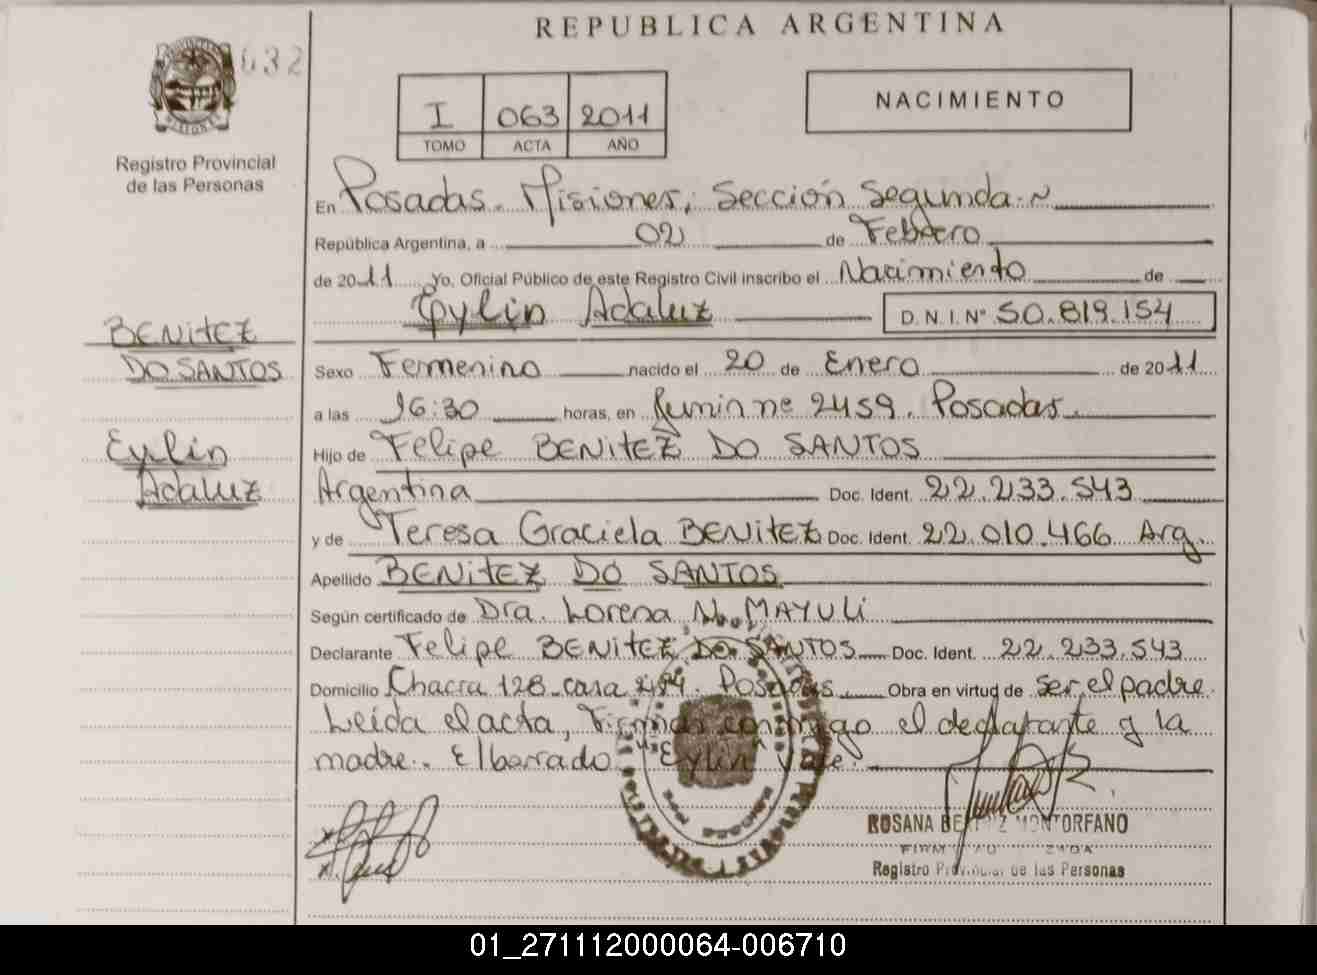 632
REPUBLICA ARGENTINA
I 063 2011
TOMO ACTA AÑO
NACIMIENTO
Registro Provincial
de las Personas
En Posadas. Misiones, Sección Segunda.~
República Argentina, a 02 de Febrero
de 2011 Yo, Oficial Público de este Registro Civil inscribo el Nacimiento de
Eylin Adaluz D.N.I.Nº 50.819.154
BENITEZ
DO SANTOS
Sexo Femenino nacido el 20 de Enero de 2011
a las 16:30 horas, en Junin nº 2459. Posadas.
Eylin
Adaluz
Hijo de Felipe BENITEZ DO SANTOS
Argentina Doc. Ident. 22.233.543
y de Teresa Graciela BENITEZ Doc. Ident. 22.010.466 Arg.
Apellido BENITEZ DO SANTOS
Según certificado de Dra. Lorena N. MAYULI
Declarante Felipe BENITEZ DO SANTOS Doc. Ident. 22.233.543
Domicilio Chacra 128 casa Posadas Obra en virtud de ser el padre.
Leida el acta, Firman conmigo el declarante y la
madre. El borrado "Eylin" Vale.
ROSANA BEATRIZ MONTORFANO
Registro Provincial de las Personas
01_271112000064-006710